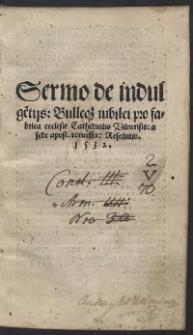 Sermo de indul
gẽtijs: Bulleqꝫ iubilei pro fa-
brica ecclesie Cathedralis Vilnensis: a
sede apost. concesse: Resolutio.
1532.
2
V
70
Cancl. III.
Arm. III
Nro